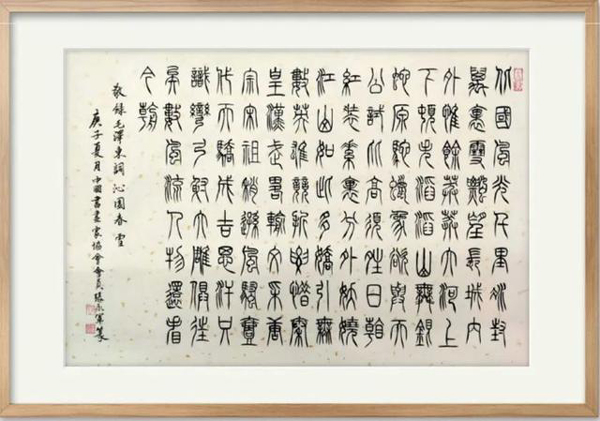 北國風光千里冰封
萬裏雪飄望長城内
外惟餘莽莽大河上
下頓失滔滔山舞銀
蛇原馳蠟象欲與天
公試比高須晴日看
紅裝素裹分外妖嬈
江山如此多嬌引無
數英雄競折腰惜秦
皇漢武略輸文采唐
宗宋祖稍遜風騷壹
代天驕成吉思汗只
識彎弓射大雕俱往
矣數風流人物還看
今朝
敬錄毛澤東詞沁園春雪
庚子夏月中國書畫家協會會員張永軍篆